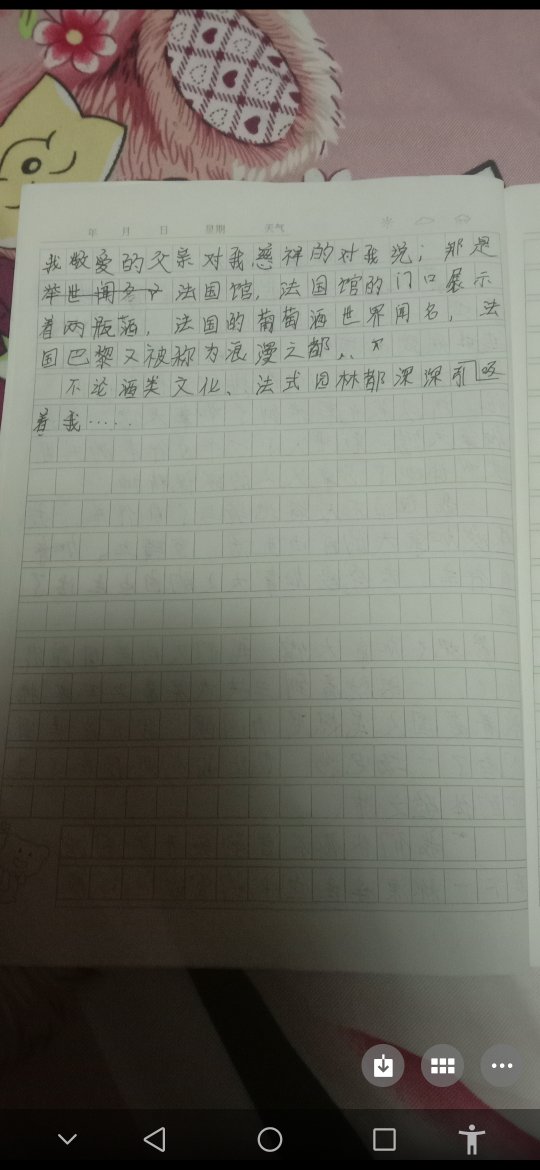 年 月 日 星期 天气
我敬爱的父亲对我慈祥的对我说；那是
举世闻名 法国馆，法国馆的门口展示
着两瓶酒，法国的葡萄酒世界闻名，法
国巴黎又被称为浪漫之都
不论酒类文化、法式园林都深深引
着我……